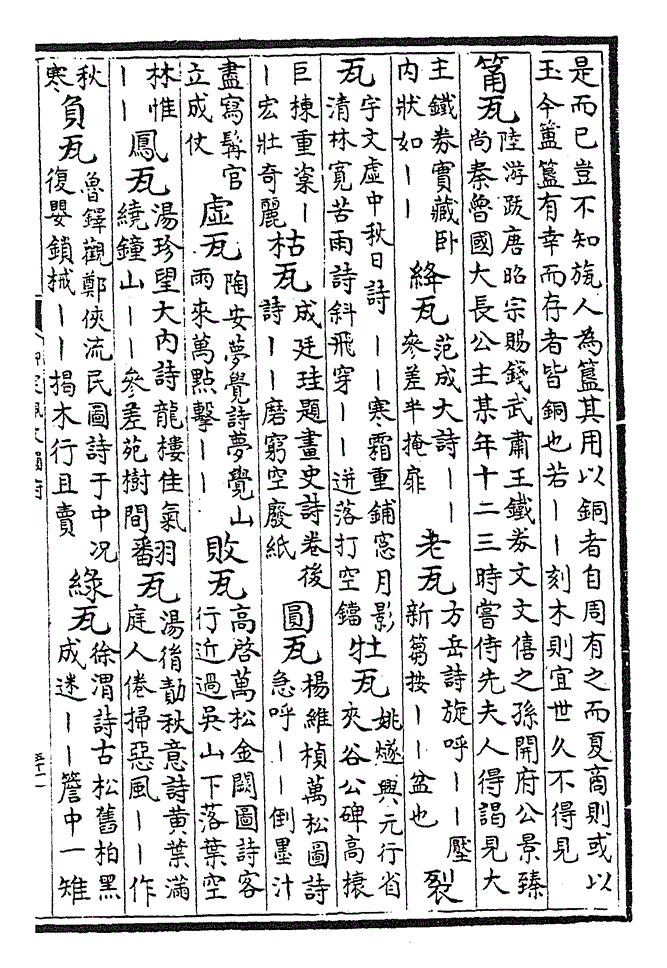 是而已豈不知旊人為簠其用以銅者自周有之而夏商則或以
玉今簠簋有幸而存者皆銅也若——刻木則宜世久不得見
筩瓦 陸游跋唐昭宗賜錢武肅王鐵券文文僖之孫開府公景臻
尚秦魯國大長公主某年十二三時嘗侍先夫人得謁見大
主鐵券實藏卧內狀如—— 絳瓦 范成大詩——參差半掩扉 老瓦 方岳詩旋呼——壓新篘按——盆也 裂
瓦 宇文虛中秋日詩——寒霜重鋪窓月影清林寬苦雨詩斜飛穿——迸落打空鐺 牡瓦 姚燧興元行省夾谷公碑高榱
巨棟重窠——宏壯奇麗 枯瓦 成廷珪題畫史詩卷後詩——磨窮空廢紙 圓瓦 楊維楨萬松圖詩急呼——倒墨汁
盡寫髯官立成仗 虛瓦 陶安夢覺詩夢覺山雨來萬點擊—— 敗瓦 高啓萬松金闕圖詩客行近過吳山下落葉空
林惟—— 鳳瓦 湯珍望大內詩龍樓佳氣繞鐘山——參差苑樹間 翻瓦 湯勣秋意詩黃葉滿庭人倦掃惡風——作
秋寒 負瓦 魯鐸觀鄭俠流民圖詩于中況復嬰鎖械——揭木行且賣 綠瓦 徐渭詩古松舊柏黑成迷——簷中一雉